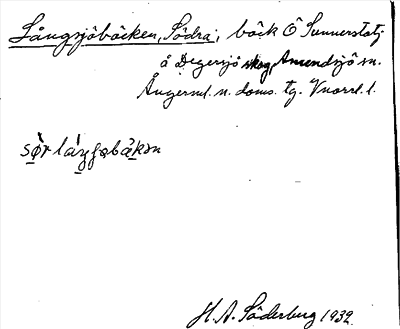 Långsjöbäcken, Södra, bäck Ö Sunnerstatj.
å Degersjö skog, Anundsjö sn.
Ångerml. n. doms. tg. Vnorrl. l.
H. A. Söderberg 1932